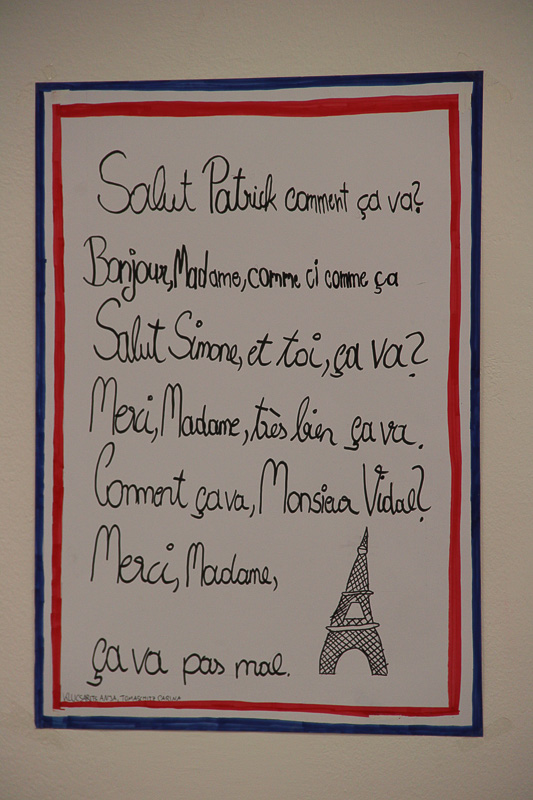 Salut Patrick comment ça va?
Bonjour, Madame, comme ci comme ça
Salut Simone, et toi, ça va?
Merci, Madame, très bien ça va.
Comment ça va, Monsieur Vidal?
Merci, Madame,
ça va pas mal.